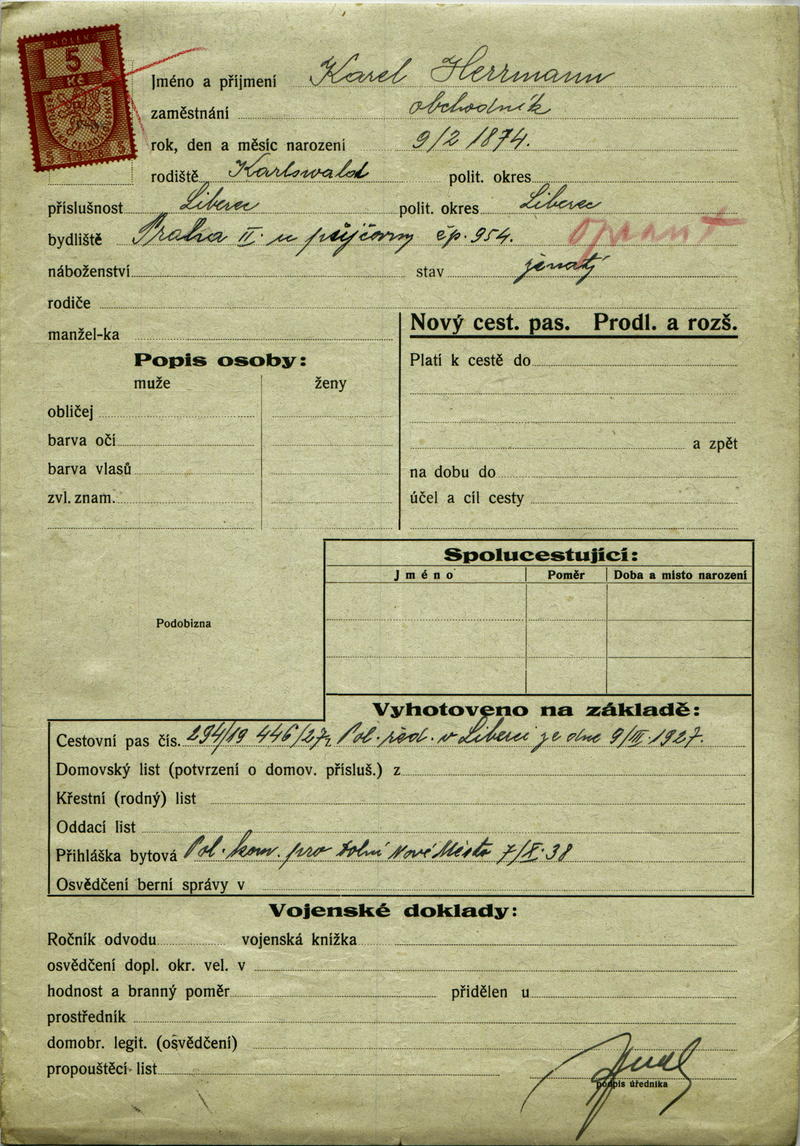 KOLEK
5
Kč
5 5
Jméno a příjmení Karel Herrmann
zaměstnání obchodník
rok, den a měsíc narození 9/2 1874.
rodiště Karlswald polit. okres
příslušnost Liberec polit. okres Liberec
bydliště Praha II. u půjčovny čp. 954. optant
náboženství stav ženatý
rodiče
manžel-ka
Nový cest. pas. Prodl. a rozš.
Popis osoby:
muže ženy
obličej
barva očí
barva vlasů
zvl. znam.
Platí k cestě do
a zpět
na dobu do
účel a cíl cesty
Spolucestující:
Jméno Poměr Doba a místo narození
Podobizna
Vyhotoveno na základě:
Cestovní pas čís. 294/19 446/27, Pol. řed. v Liberci ze dne 9/III. 1927.
Domovský list (potvrzení o domov. přísluš.) z
Křestní (rodný) list
Oddací list
Přihláška bytová Pol. kom. pro dolní Nové Město 7/X. 38
Osvědčení berní správy v
Vojenské doklady:
Ročník odvodu vojenská knížka
osvědčení dopl. okr. vel. v
hodnost a branný poměr přidělen u
prostředník
domobr. legit. (osvědčení)
propouštěcí list
podpis úředníka